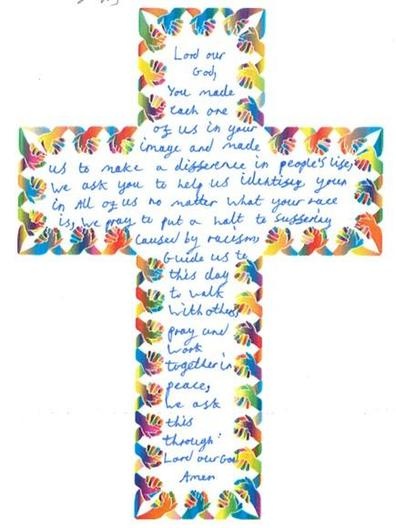 Lord our
God,
You made
each one
of us in your
image and made
us to make a difference in people's lise,
we ask you to help us identisey your
in All of us no matter what your race
is, we pray to put a halt to susserley
caused by racism,
Guide us to
this day
to walk
with others,
pray and
work
together in
peace,
we ask
this
through
Lord our God
Amen